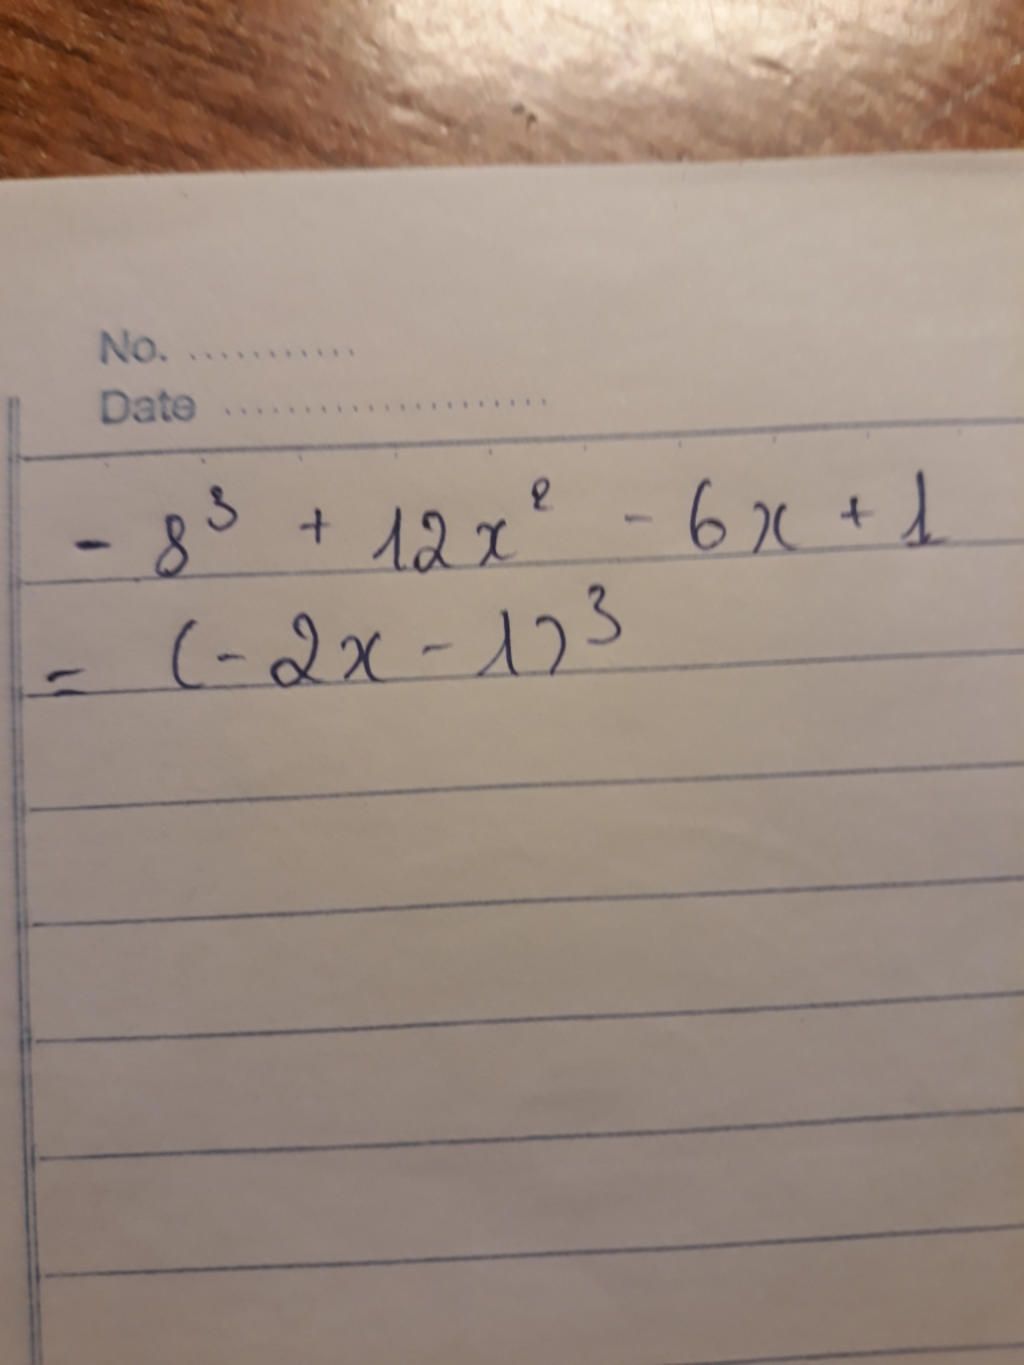 No. ...........
Date .....................
- 8³ + 12x² - 6x + 1
= (-2x - 1)³